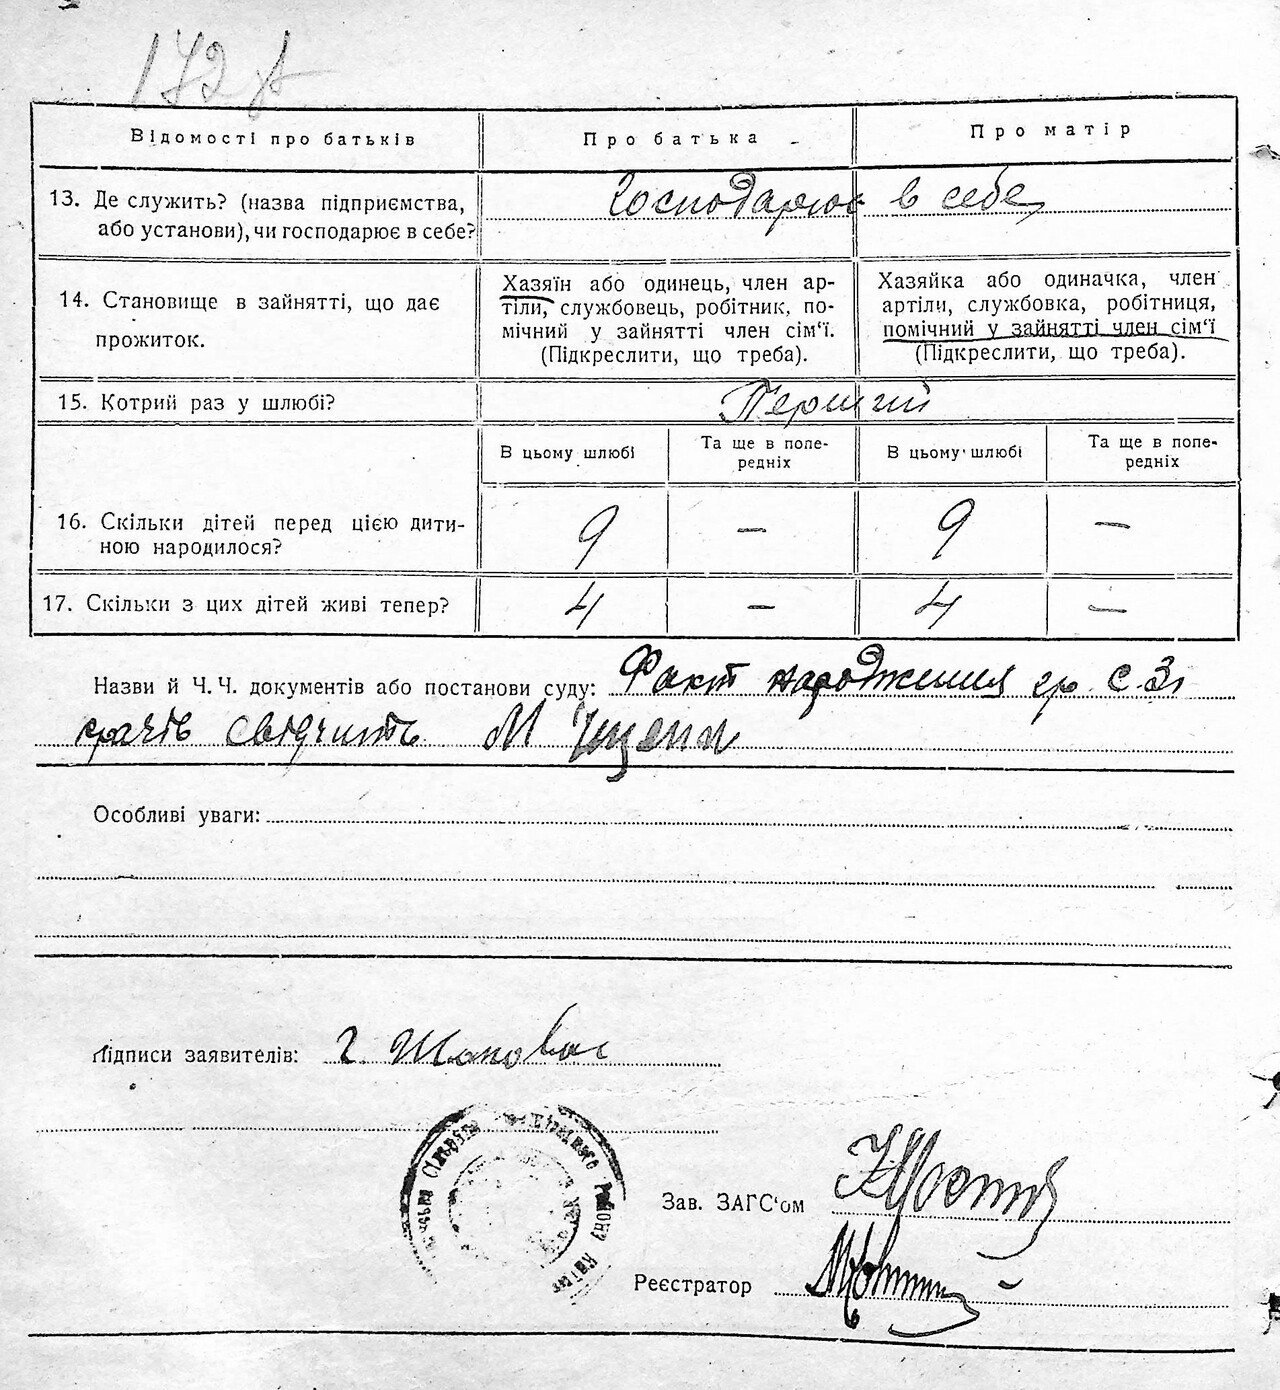 172
Відомості про батьків
Про батька
Про матір
13. Де служить? (назва підприємства,
або установи), чи господарює в себе?
Господарює в себе
14. Становище в зайнятті, що дає
прожиток.
Хазяїн або одинець, член ар-
тіли, службовець, робітник, по-
мічний у зайнятті член сім'ї.
(Підкреслити, що треба).
Хазяйка або одиначка, член
артіли, службовка, робітниця,
помічний у зайнятті член сім'ї
(Підкреслити, що треба).
15. Котрий раз у шлюбі?
Перший
В цьому шлюбі
Та ще в попе-
редніх
В цьому шлюбі
Та ще в попе-
редніх
16. Скільки дітей перед цією дити-
ною народилося?
9 — 9 —
17. Скільки з цих дітей живі тепер?
4 — 4 —
Назви й Ч. Ч. документів або постанови суду: Факт народження гр. с.
свідчить М
Особливі уваги:
Підписи заявителів: Г.
Району
Зав. ЗАГС'ом
Реєстратор